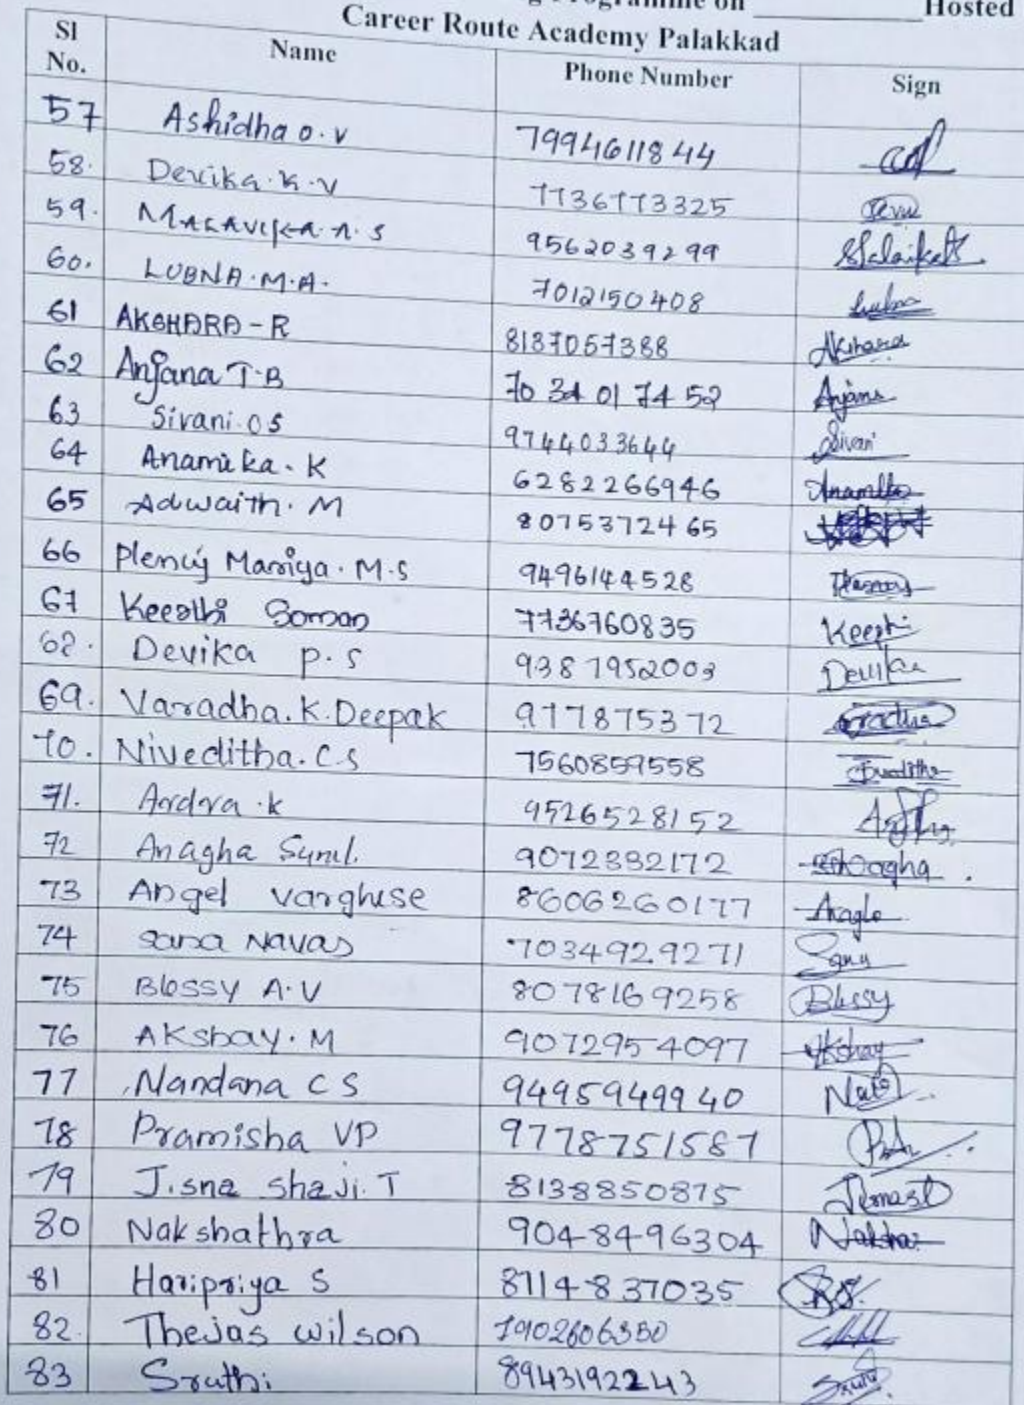 on ____________ Hosted
Career Route Academy Palakkad
Sl No. Name Phone Number Sign
57 Ashidha O.V 7994611844
58. Devika.K.V 7736773325
59. MALAVIKA.A.S 9562039299
60. LUBNA.M.A. 7012150408 Lubna
61 AKSHARA-R 8137057388 Akshara
62 Anjana T.B 70 34 01 74 52 Anjana
63 Sivani.O S 9744033644 Sivani
64 Anamika.K 6282266946 Anamika
65 Adwaith.M 8075372465
66 Plency Mariya.M.S 9496144528
67 Keerthi Soman 7736760835 Keerthi
68. Devika P.S 9387952003 Devika
69. Varadha.K.Deepak 977875372
70. Niveditha.C.S 7560859558
71. Ardra.k 9526528152
72 Anagha Sunil. 9072332172
73 Angel varghese 8606260177
74 sana Navas 7034929271
75 Blessy A.V 8078169258 Blessy
76 Akshay.M 9072954097 Akshay
77 Nandana C S 9495949940
78 Pramisha VP 9778751587
79 Jisna shaji.T 8138850875
80 Nakshathra 9048496304
81 Haripriya S 8114837035
82. Thejas wilson 7902606350
83 Sruthi 8943192243